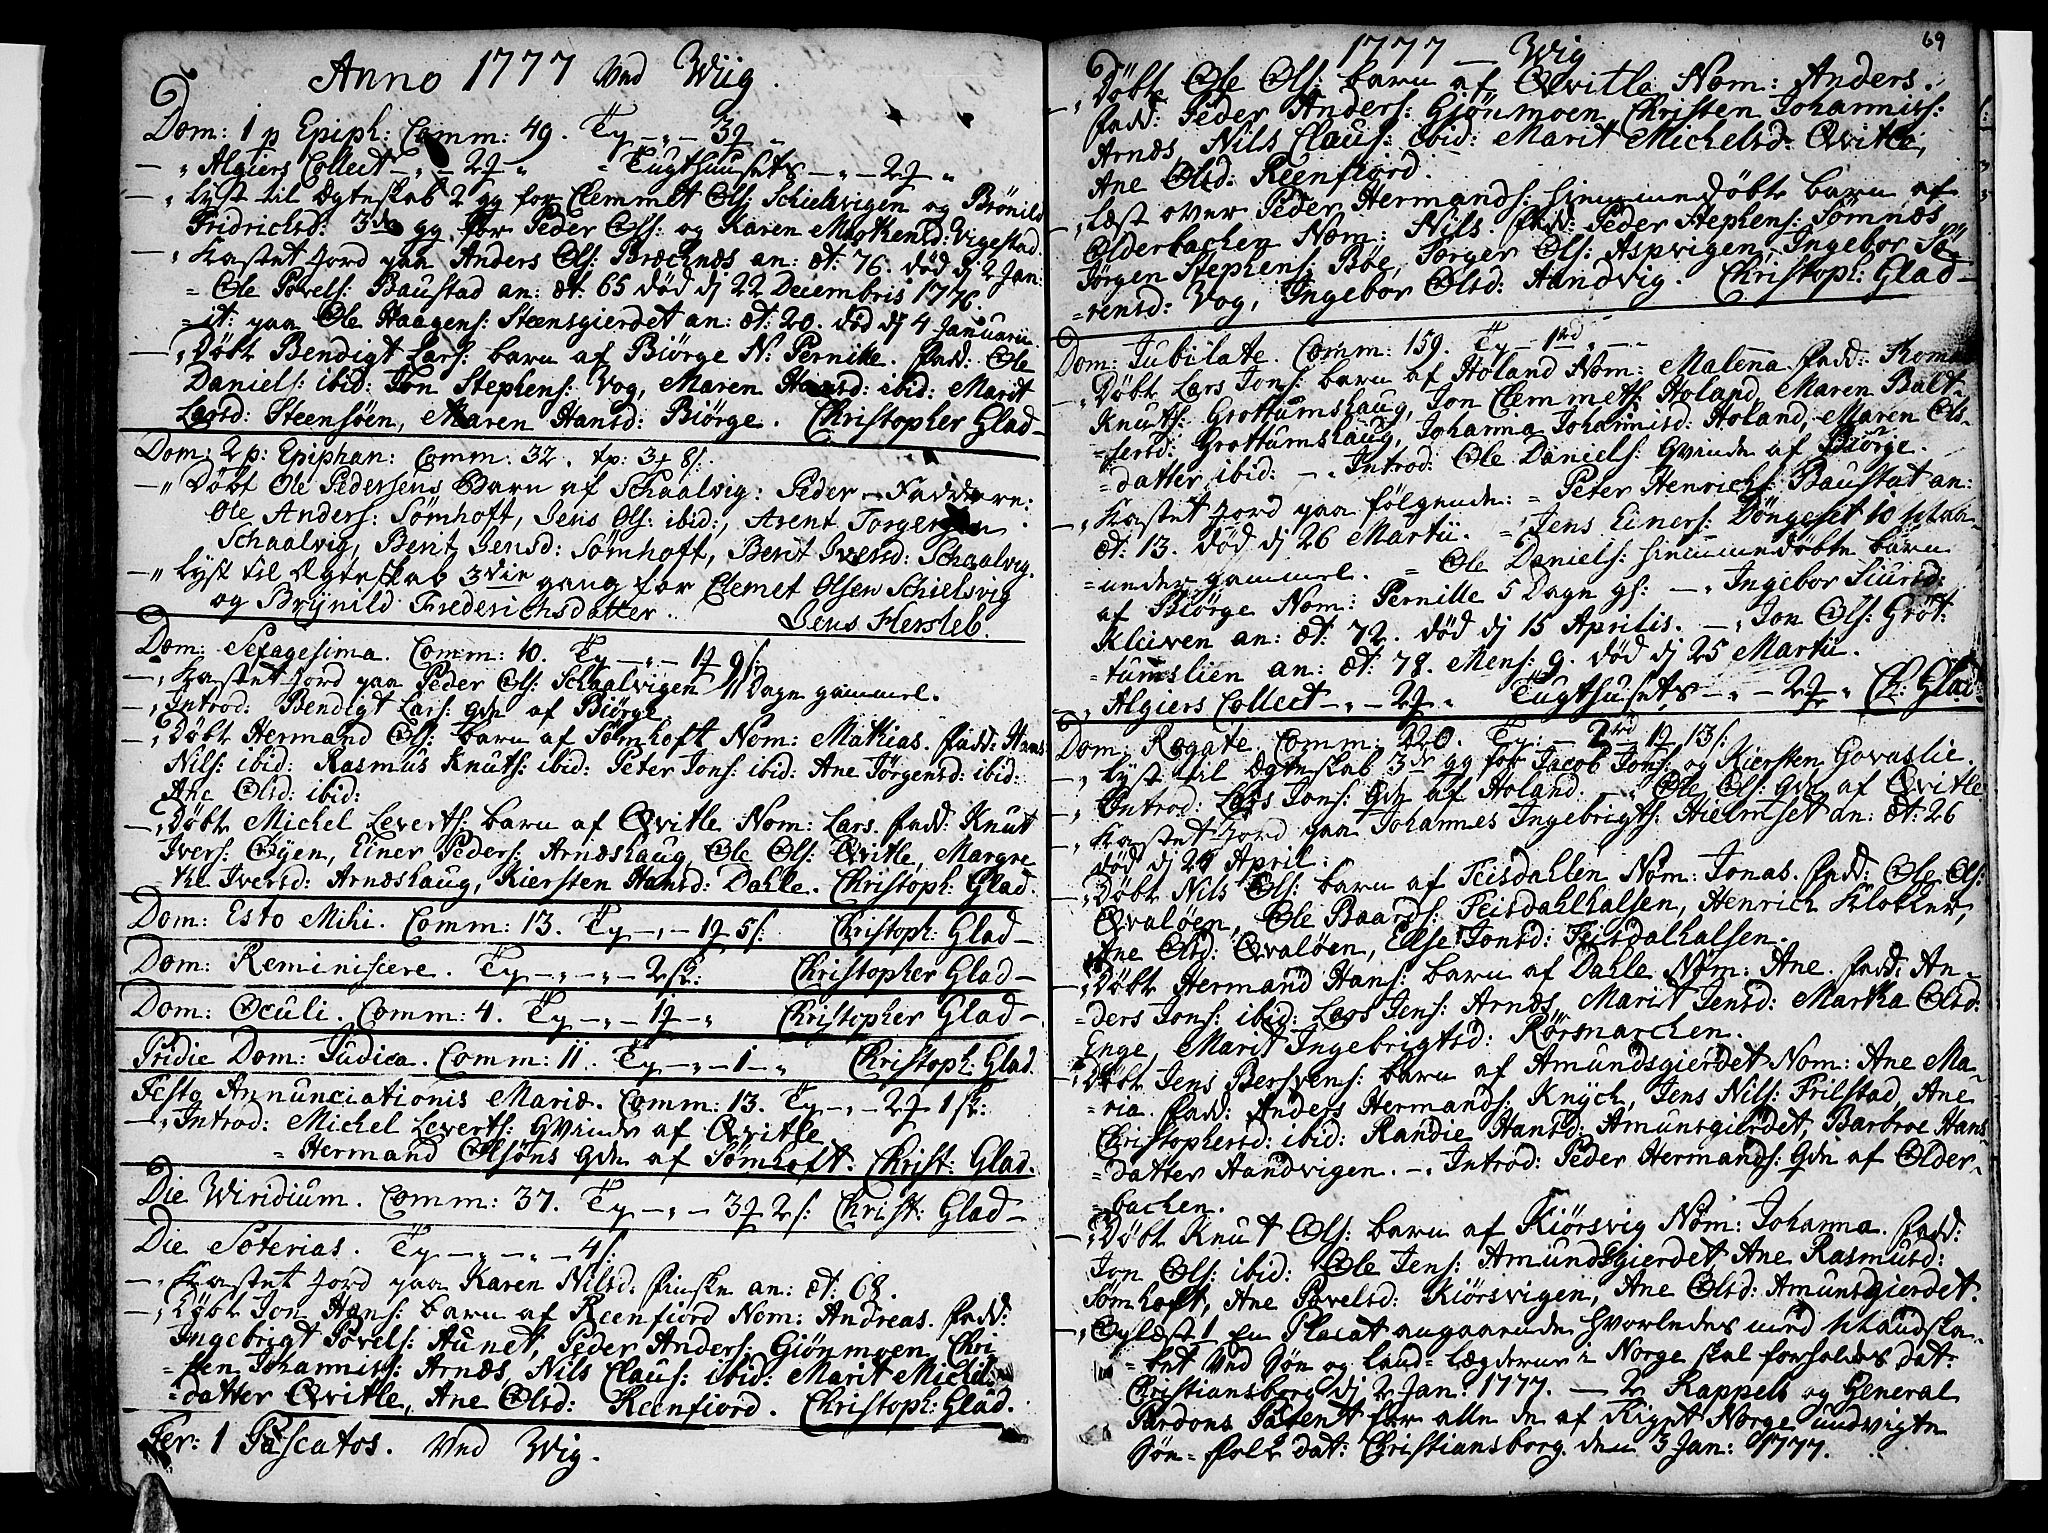 Anno 1777 ved Wiig.
Dom: 1 p Epiph: Comm: 49. Ty —„— 3
— „ Algiers Collect —„— 2 „ = Tugthusets —„— 2 „
— „ Lyst til Ægteskab 2 gg for Clemmet Ols: Schielvigen og Brönild
Fridrichsd: 3die gg for Peder Ols: og Karen Mortensd: Vigestad.
— „ Kastet Jord paa Anders Ols: Bræchnæs an: æt: 76. død dj 2 Jan:
= Ole Povels: Baustad an: æt: 65 død dj 22 Decembris 1776.
= it: paa Ole Haagens: Steensgierdet an: æt: 20. død dj 4 Januarii.
— „ Døbt Bendigt Lars: barn af Biörge N: Pernille. fadd: Ole
Daniels: ibid: Jon Stephens: Vog, Maren Hansd: ibid: Marit
Larsd: Steensöen, Maren Hansd: Biörge. Christopher Glad—
Dom: 2 p: Epiphan: Comm: 32. tp: 3 8ſ:
— „ Döbt Ole Pedersens Barn af Schaalvig: Peder — Faddere:
Ole Anders: Sömhoft, Jens Ols: ibid:, Arent Torgersen
Schaalvig, Berit Jensd: Sömhoft, Berit Iversd: Schaalvig.
— „ Lyst til Ægteskab 3die gang for Clemet Olsen Schielsvig
og Brÿnild Frederichsdatter. Jens Hersleb.
Dom: Sexagesima. Comm: 10. Ty —„— 1 9ſ:
— „ Kastet Jord paa Peder Ols: Schaalvigen 11 Dage gammel.
— „ Introd: Bendigt Lars: qde af Biörge
— „ Døbt Hermand Ols: barn af Sömhoft Nom: Mathias. fadd: Hans
Nils: ibid: Rasmus Knuts: ibid: Peter Jons: ibid: Ane Jörgensd: ibid:
Ane Olsd: ibid:
— „ Døbt Michel Leverts: barn af Qvitle Nom: Lars. fadd: Knut
Ivers: Öyen, Einer Peders: Arnæshaug, Ole Ols: Qvitle, Margre
= the Iversd: Arnæshaug, Kiersten Hansd: Dahle. Christoph: Glad.
Dom: Esto Mihi. Comm: 13. Ty —„— 1 5ſ: Christoph: Glad—
Dom: Reminiscere. Ty —„—„— 2 sk: Christopher Glad—
Dom: Oculi. Comm: 4. Ty —„— 1 —„ Christopher Glad—
Pridie Dom: Judica. Comm: 11. Ty —„— 1 —„ Christoph: Glad.
Festo Annunciationis Mariæ. Comm: 13. Ty —„— 2 1 sk:
— „ Introd: Michel Leverts: Qvinde af Qvitle
= Hermand Olsöns qde af Sömhoft. Christ: Glad.
Die Wiridium. Comm: 37. Ty —„— 3 2ſ: Christ: Glad—
Die Soterias. Ty —„—„— 4ſ:
— „ Kastet Jord paa Karen Nilsd: an: æt: 68.
— „ Døbt Jon Hans: barn af Reenfiord Nom: Andreas. fadd:
Ingebrigt Povels: Aunet, Peder Anders: Giönmoen, Chri
= sten Johannis: Arnæs, Nils Claus: ibid: Marit Michels
= datter Qvitle, Ane Olsd: Reenfiord. Christoph: Glad.
Fer: 1 Pascatos. Ved Wig.
69
1777 — Wig
— „ Døbt Ole Ols: barn af Qvitle Nom: Anders.
fadd: Peder Anders: Giönmoen Christen Johannis:
Arnæs, Nils Claus: ibid: Marit Michelsd: Qvitle,
Ane Olsd: Reenfiord.
— „ Læst over Peder Hermands: hiemmedøbte barn af
Olderbachen Nom: Nils. fadd: Peder Stephens: Sömnæs
Jörgen Stephens: Böe, Torger Ols: Aspvigen, Ingebor Sö
= rensd: Vog, Ingebor Olsd: Handvig. Christoph: Glad—
Dom: Jubilate. Comm: 159. Ty — 1rd „ —
— „ Døbt Lars Jons: barn af Holand Nom: Malena. fadd: Thomas
Knuts: Grottumshaug, Jon Clemmets: Holand, Maren Balt
= sersd: Grottumshaug, Johanna Johannisd: Holand, Maren Ols-
= datter ibid: —„ Introd: Ole Daniels: Qvinde af Biörge.
— „ Kastet Jord paa følgende: = Peter Henrichs: Baustat an:
æt: 13. død dj 26 Martii. = Jens Einers: Döngeset 10
= under gammel. = Ole Daniels: hiemmedøbte barn
af Biörge Nom: Pernille 5 Dage gl: —„ Ingebor Siursd:
Kleiven an: æt: 72. død dj 15 Aprilis. —„ Jon Ols: Gröt:
= tumslien an: æt: 78. Mens: 9. død dj 25 Martii.
— „ Algiers Collect —„— 2 „ Tugthusets —„— 2 „ Ch: Glad:
Dom: Rogate Comm: 220. Ty: — 2rd 1 13ſ:
— „ Lyst til Ægteskab 3de gg for Jacob Jons: og Kiersten Govaslie.
— „ Introd: Lars Jons: Qde af Holand. —„ Ole Ols: Qde af Qvitle
— „ Kastet Jord paa Johannes Ingebrigts: Hielmset an: æt: 26
død dj 20 April.
— „ Døbt Nils Ols: barn af Feisdahlen Nom: Jonas. fadd: Ole Ols:
Qvalöen, Ole Baards: Feisdahlhalsen, Henrich Klokker,
Ane Olsd: Qvalöen, Else Jonsd: Feisdalhalsen.
— „ Døbt Hermand Hans: barn af Dahle Nom: Ane. fadd: An-
= ders Jons: ibid: Lars Jens: Arnæs, Marit Jensd: Martha Olsd:
Enge, Marit Ingebrigtsd: Rörmarchen.
— „ Døbt Jens Bersvens: barn af Amundsgierdet Nom: Ane Ma-
= ria. fadd: Anders Hermands: Knych, Jens Nils: Frilstad, Ane
Christophersd: ibid: Randie Hansd: Amunsgierdet, Barbroe Hans-
= datter Handvigen. —„ Introd: Peder Hermands: Qde af Older-
= bachen.
— „ Døbt Knut Ols: barn af Kiörsvig Nom: Johanna. fadd:
Jon Ols: ibid: Ole Jens: Amundsgierdet, Ane Rasmusd:
Sömhoft, Ane Povelsd: Kiörsvigen, Ane Olsd: Amunsgierdet.
— „ Oplæst 1 En Placat angaaende Hvorledes med Mandska-
= bet ved Søe og Land = Lægderne i Norge skal forholdes dat:
Christiansborg dj 2 Jan: 1777. — 2 Rappels og General
Pardons Patent for alle de af Riget Norge undvigte
Søe = folk dat: Christiansborg den 3 Jan: 1777.